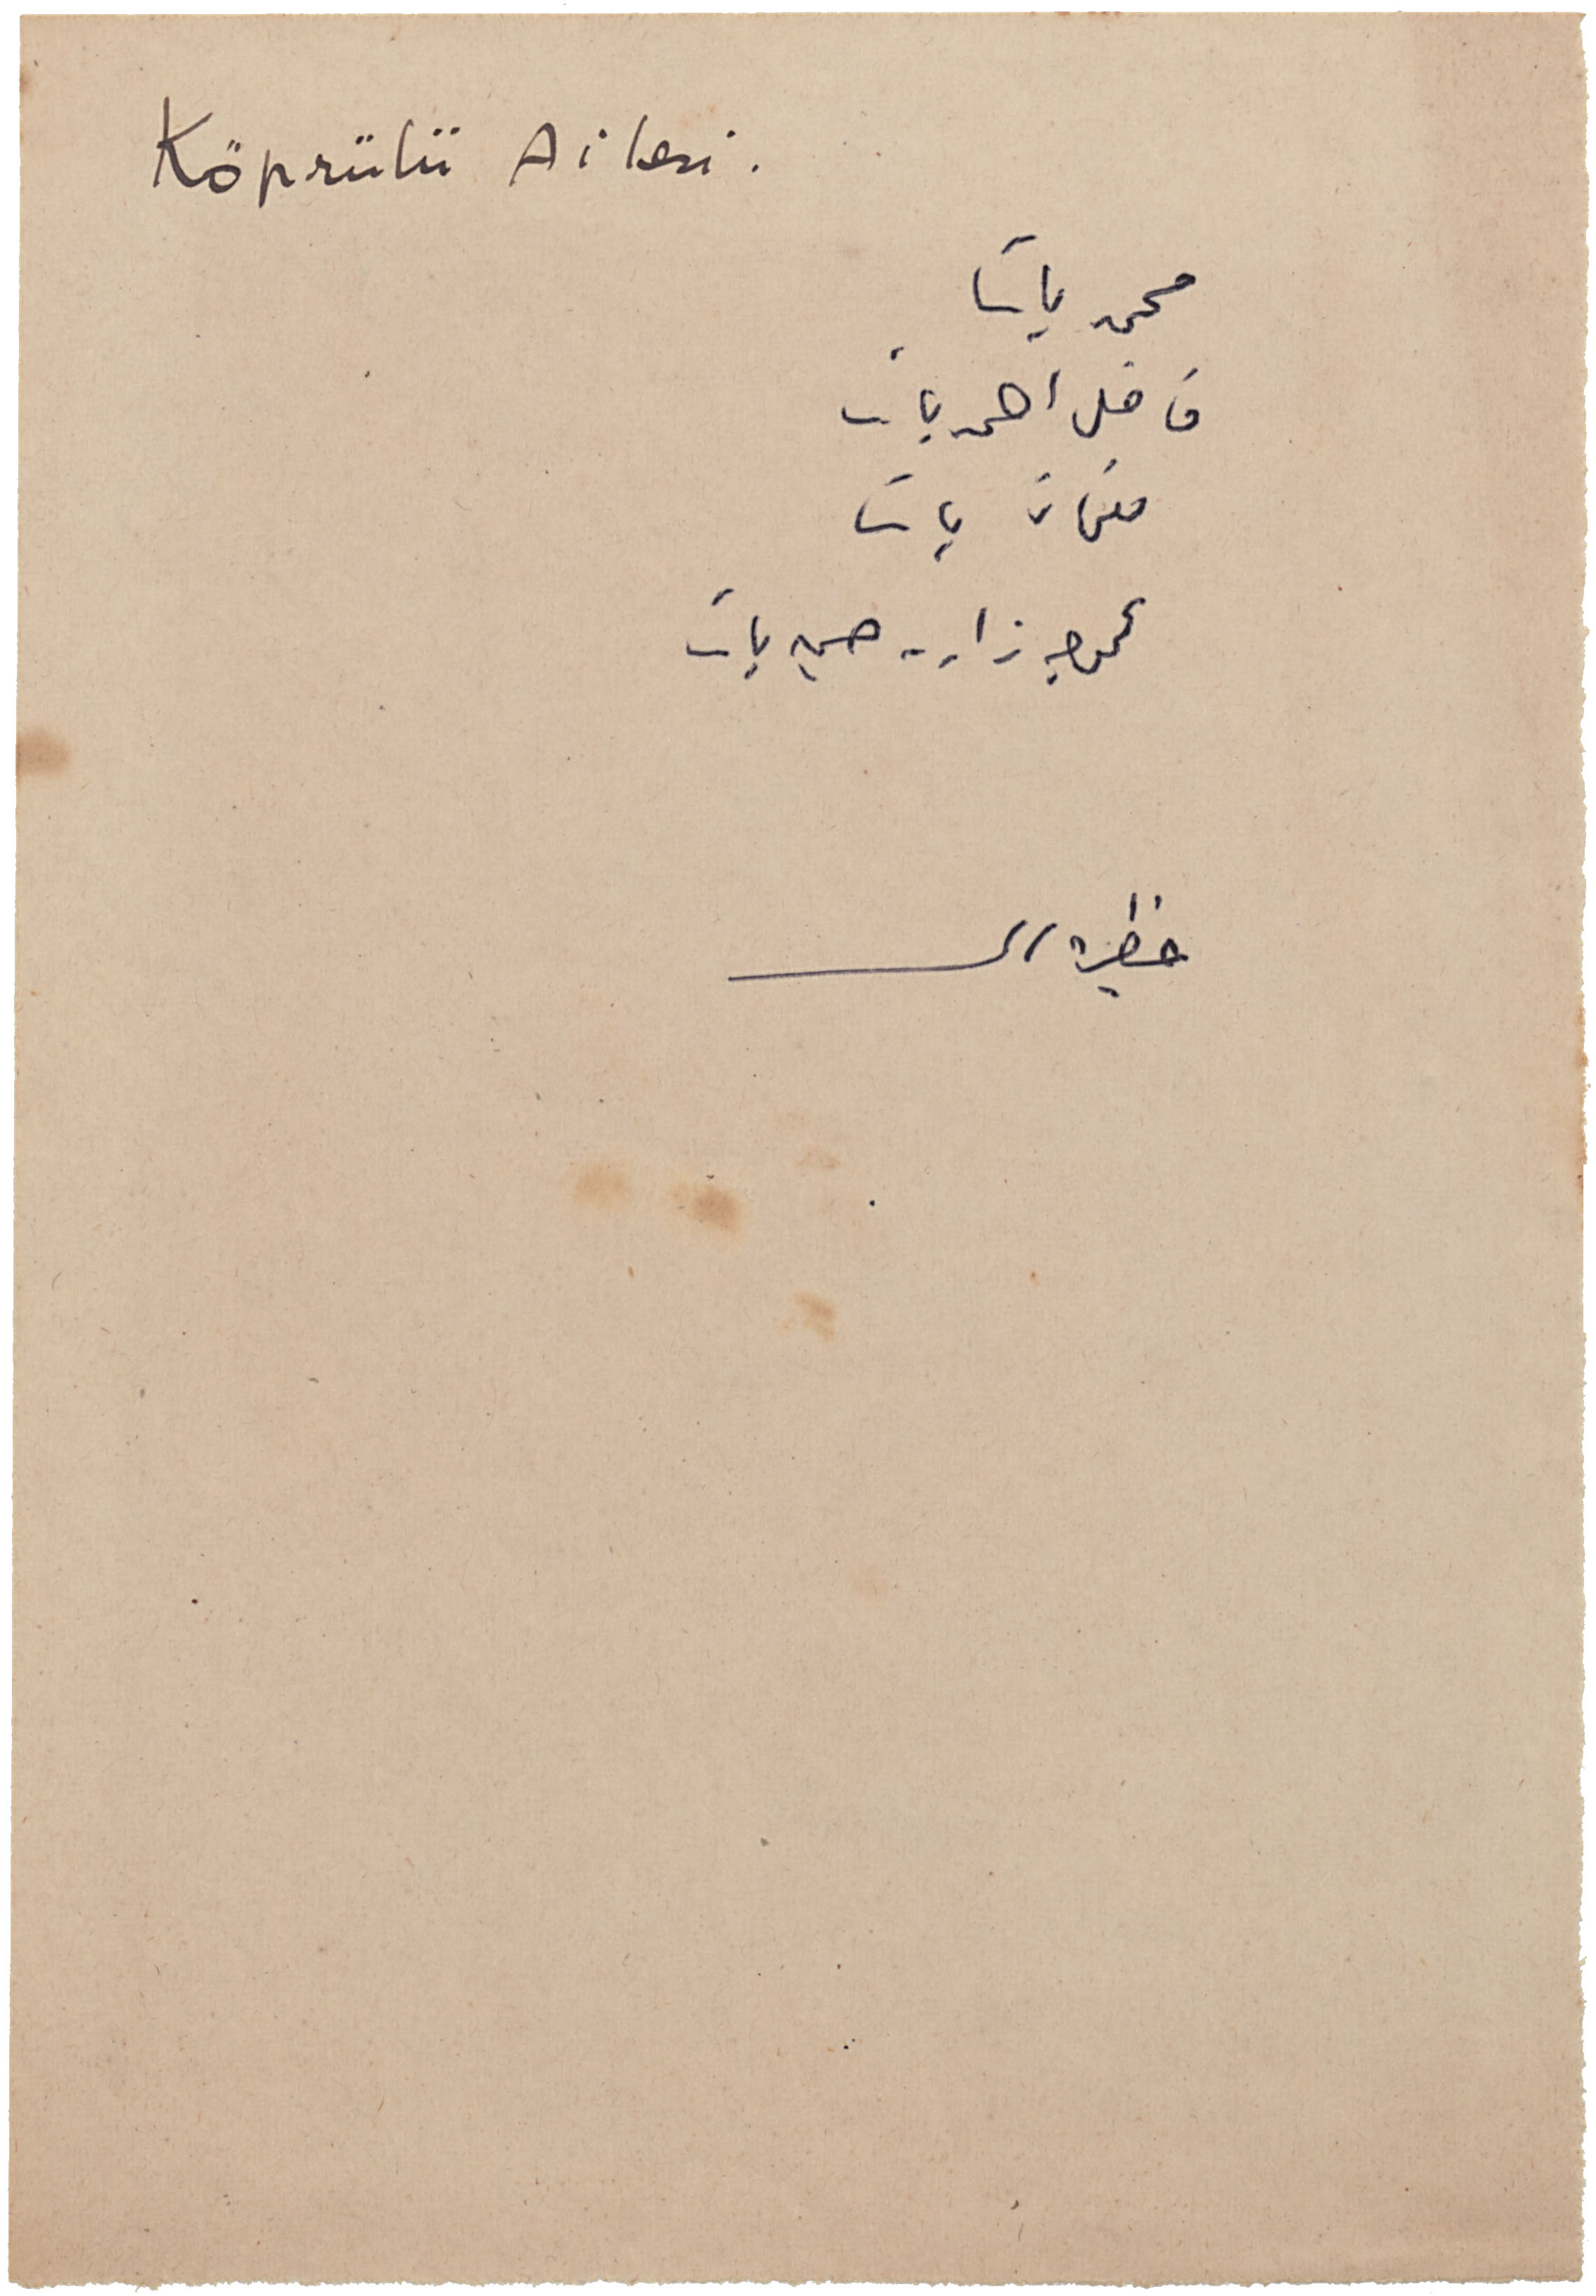 Köprülü Ailesi.
محمد پاشا
فاضل احمد پاشا
مصطفی پاشا
عموجه زاده حسین پاشا